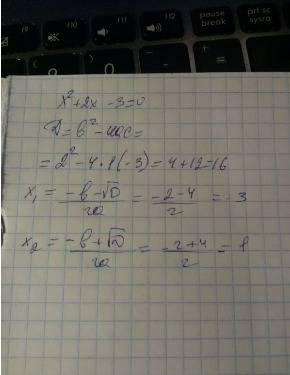 110 111 112 pause break prt sc sysrq
x² + 2x - 3 = 0
D = b² - 4ac =
= 2² - 4 · 1 (-3) = 4 + 12 = 16
x₁ = (-b - √D) / 2a = (-2 - 4) / 2 = -3
x₂ = (-b + √D) / 2a = (-2 + 4) / 2 = 1